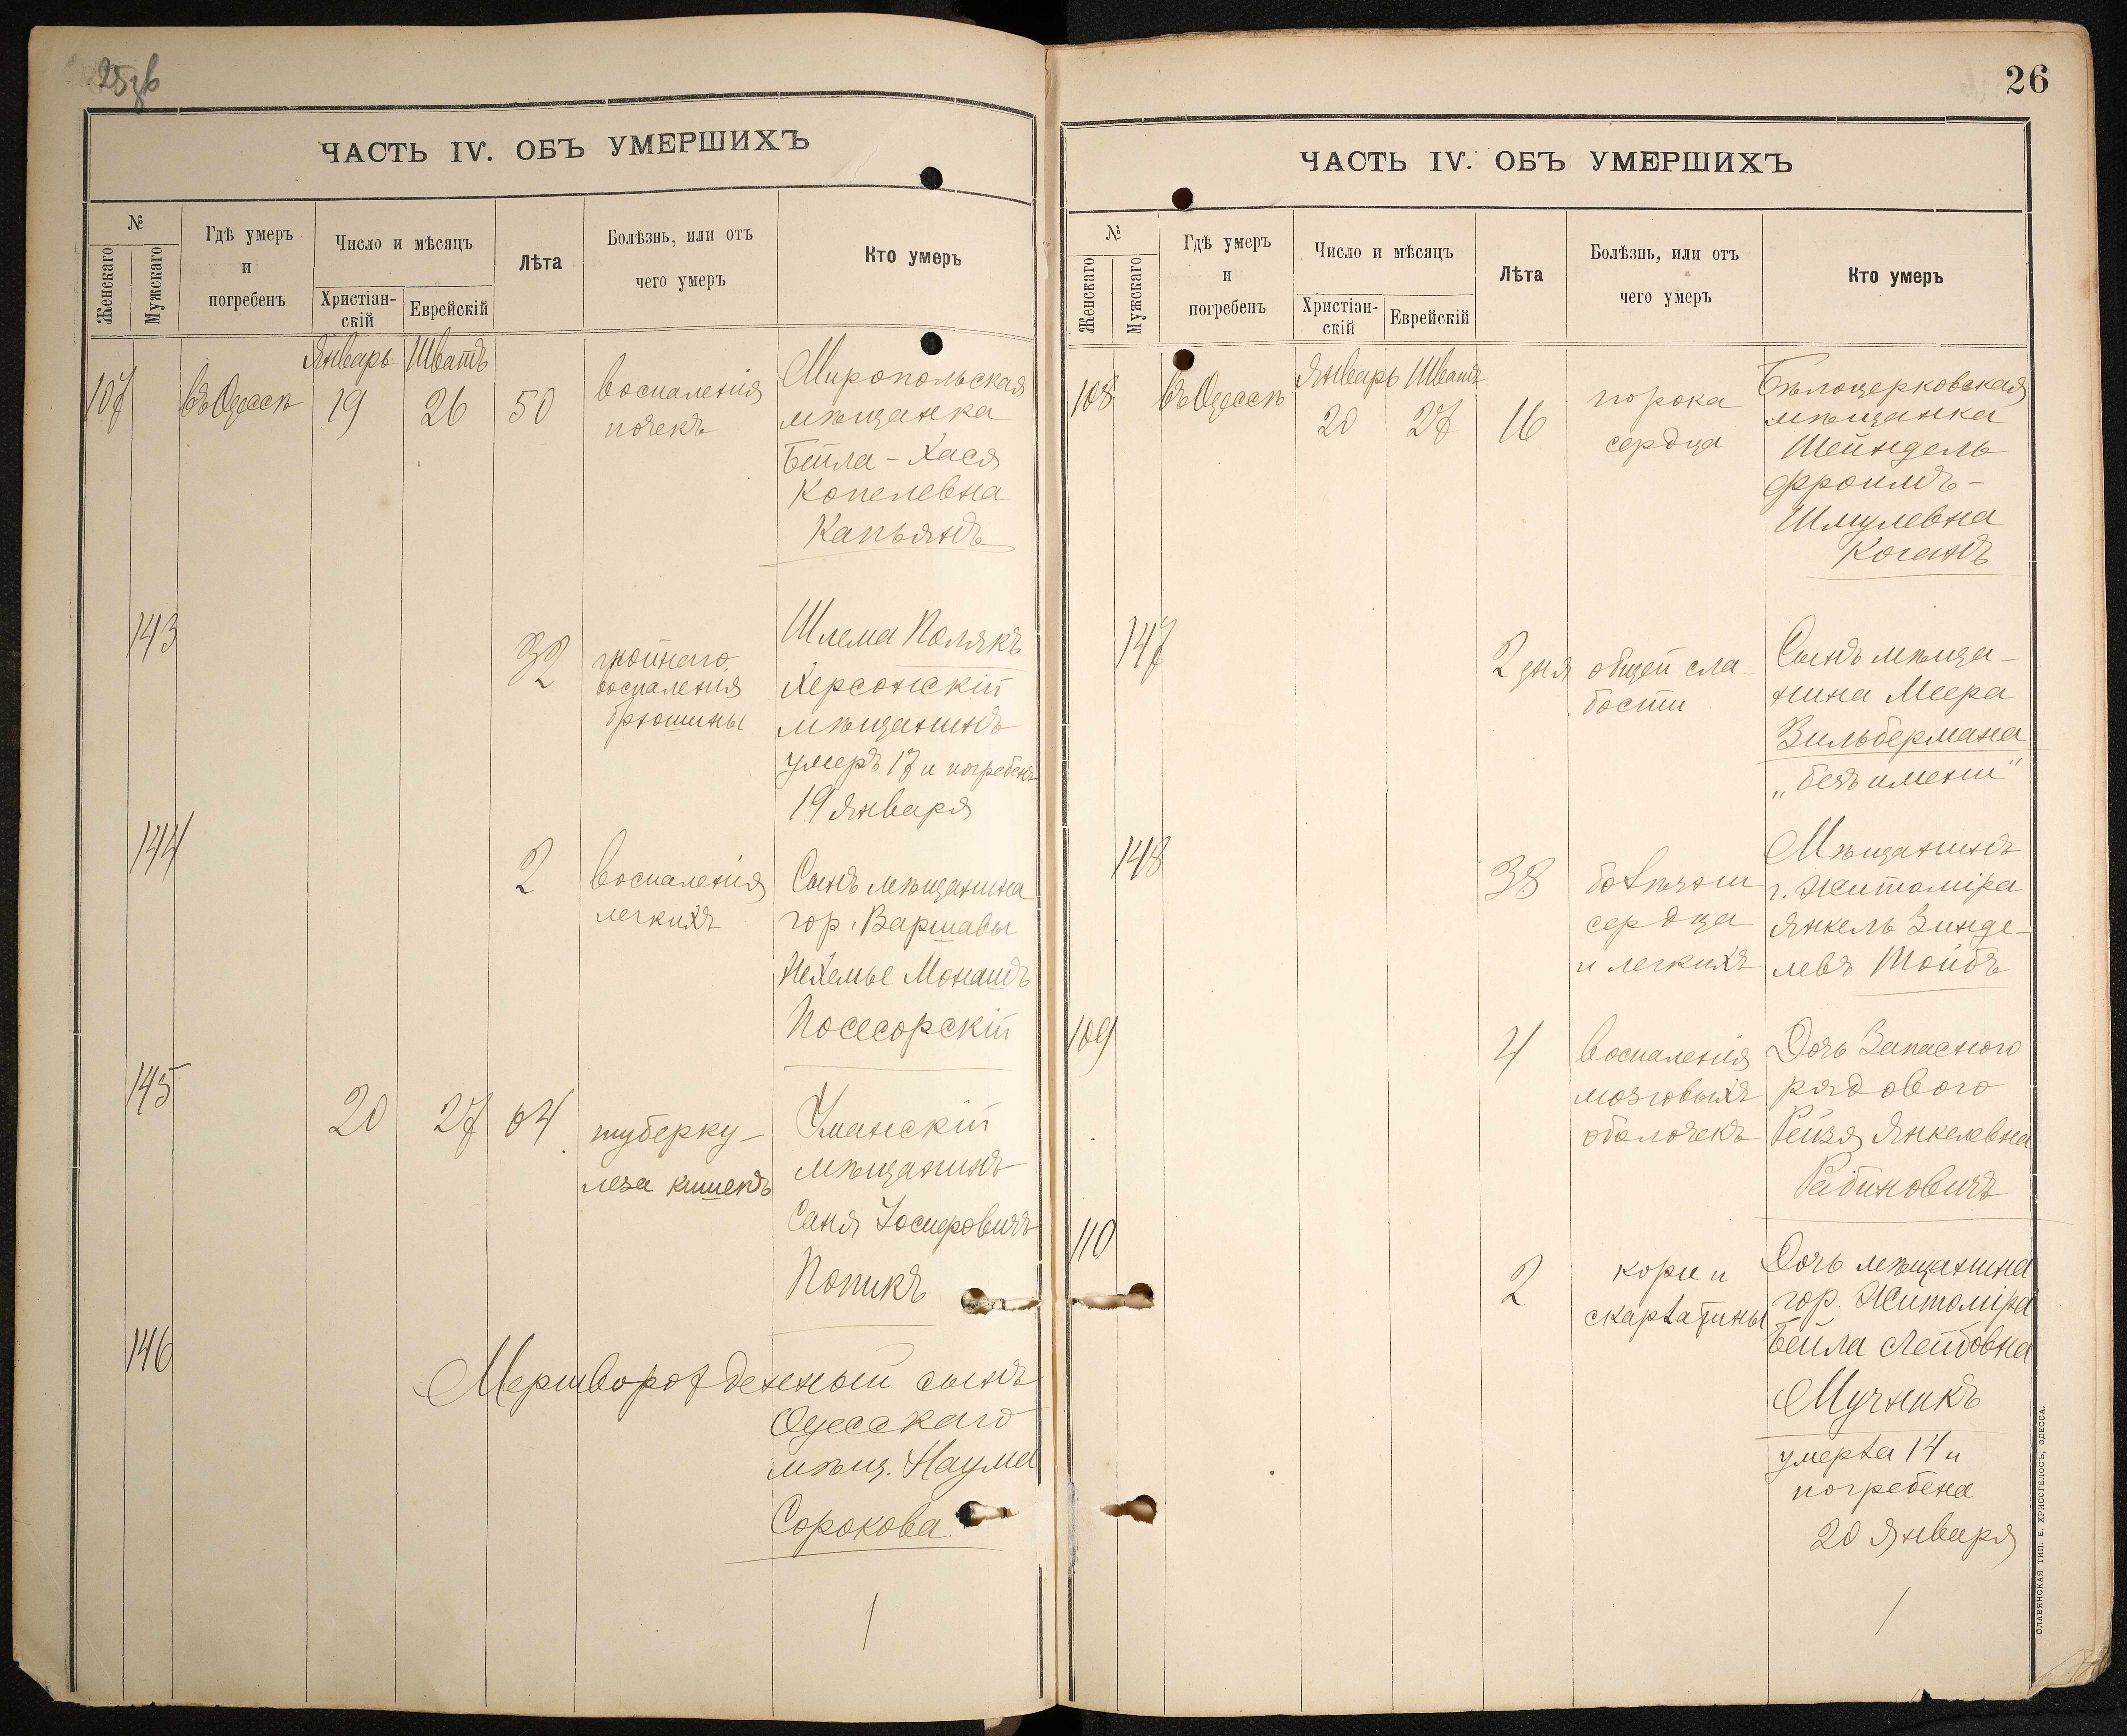 25зв
ЧАСТЬ IV. ОБЪ УМЕРШИХЪ
№
Женскаго
Мужскаго
Гдѣ умеръ
и
погребенъ
Число и мѣсяцъ
Христіан-
скій
Еврейскій
Лѣта
Болѣзнь, или отъ
чего умеръ
Кто умеръ
Январь Шватъ
107 въ Одессѣ 19 26 50
воспаленія
почекъ
Миропольская
мѣщанка
Бейла-Хася
Копелевна
Капьянъ
143
32
гнойнаго
воспаленія
брюшины
Шлема Полякъ
Херсонскій
мѣщанинъ
умеръ 17 и погребенъ
19 Января
144
2
воспаленія
легкихъ
Сынъ мѣщанина
гор. Варшавы
Нехемье Монашъ
Посесорскій
145
20 27 64
туберку-
леза кишекъ
Уманскій
мѣщанинъ
Саня Іосифовичъ
Попикъ
146
Мертворожденный сынъ
Одесскаго
мѣщ. Наума
Сорокова
26
ЧАСТЬ IV. ОБЪ УМЕРШИХЪ
№
Женскаго
Мужскаго
Гдѣ умеръ
и
погребенъ
Число и мѣсяцъ
Христіан-
скій
Еврейскій
Лѣта
Болѣзнь, или отъ
чего умеръ
Кто умеръ
Январь Шватъ
108 въ Одессѣ 20 27 16
порока
сердца
Бѣлоцерковская
мѣщанка
Шейндель
Фроимъ-
Шмулевна
Коганъ
147
2 дня
общей сла-
бости
Сынъ мѣща-
нина Меера
Зильбермана
„безъ имени"
148
38
болѣзни
сердца
и легкихъ
Мѣщанинъ
г. Житоміра
Янкель Зинде-
левъ Тойбъ
109
4
воспаленія
мозговыхъ
оболочекъ
Дочь Запаснаго
рядового
Рейзя Янкелевна
Рабиновичъ
110
2
кори и
скарлатины
Дочь мѣщанина
гор. Житоміра
Бейла Лейбовна
Мучникъ
умерла 14 и
погребена
20 Января
СЛАВЯНСКАЯ ТИП. Е. ХРИСОГЕЛОСЪ, ОДЕССА.